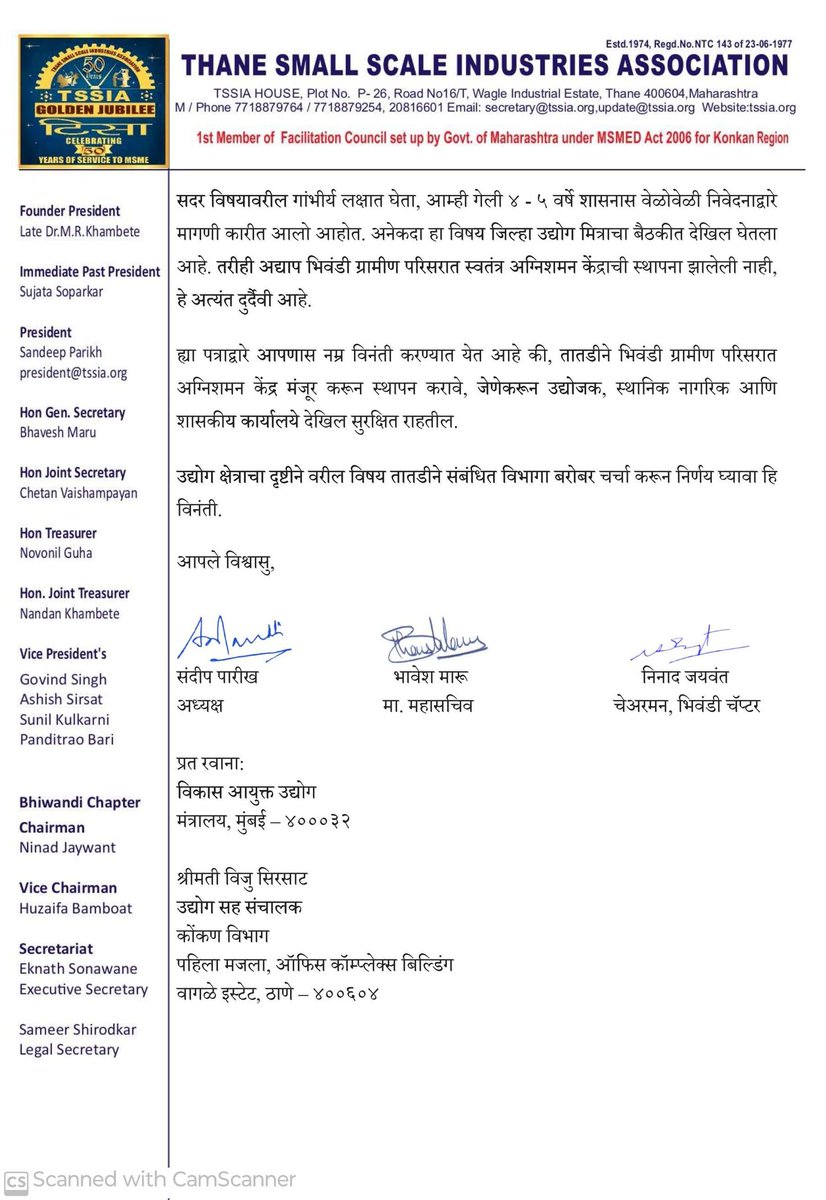 Estd.1974, Regd.No.NTC 143 of 23-06-1977
THANE SMALL SCALE INDUSTRIES ASSOCIATION
TSSIA HOUSE, Plot No. P- 26, Road No16/T, Wagle Industrial Estate, Thane 400604,Maharashtra
M / Phone 7718879764 / 7718879254, 20816601 Email: secretary@tssia.org,update@tssia.org Website:tssia.org
1st Member of Facilitation Council set up by Govt. of Maharashtra under MSMED Act 2006 for Konkan Region
THANE SMALL SCALE INDUSTRIES ASSOCIATION
50
Years
TSSIA
GOLDEN JUBILEE
टिसा
CELEBRATING
50
YEARS OF SERVICE TO MSME
Founder President
Late Dr.M.R.Khambete
Immediate Past President
Sujata Soparkar
President
Sandeep Parikh
president@tssia.org
Hon Gen. Secretary
Bhavesh Maru
Hon Joint Secretary
Chetan Vaishampayan
Hon Treasurer
Novonil Guha
Hon. Joint Treasurer
Nandan Khambete
Vice President's
Govind Singh
Ashish Sirsat
Sunil Kulkarni
Panditrao Bari
Bhiwandi Chapter
Chairman
Ninad Jaywant
Vice Chairman
Huzaifa Bamboat
Secretariat
Eknath Sonawane
Executive Secretary
Sameer Shirodkar
Legal Secretary
सदर विषयावरील गांभीर्य लक्षात घेता, आम्ही गेली ४ - ५ वर्षे शासनास वेळोवेळी निवेदनाद्वारे
मागणी कारीत आलो आहोत. अनेकदा हा विषय जिल्हा उद्योग मित्राचा बैठकीत देखिल घेतला
आहे. तरीही अद्याप भिवंडी ग्रामीण परिसरात स्वतंत्र अग्निशमन केंद्राची स्थापना झालेली नाही,
हे अत्यंत दुर्दैवी आहे.
ह्या पत्राद्वारे आपणास नम्र विनंती करण्यात येत आहे की, तातडीने भिवंडी ग्रामीण परिसरात
अग्निशमन केंद्र मंजूर करून स्थापन करावे, जेणेकरून उद्योजक, स्थानिक नागरिक आणि
शासकीय कार्यालये देखिल सुरक्षित राहतील.
उद्योग क्षेत्राचा दृष्टीने वरील विषय तातडीने संबंधित विभागा बरोबर चर्चा करून निर्णय घ्यावा हि
विनंती.
आपले विश्वासु,
संदीप पारीख भावेश मारू निनाद जयवंत
अध्यक्ष मा. महासचिव चेअरमन, भिवंडी चॅप्टर
प्रत रवाना:
विकास आयुक्त उद्योग
मंत्रालय, मुंबई – ४०००३२
श्रीमती विजु सिरसाट
उद्योग सह संचालक
कोंकण विभाग
पहिला मजला, ऑफिस कॉम्प्लेक्स बिल्डिंग
वागळे इस्टेट, ठाणे – ४००६०४
CS Scanned with CamScanner